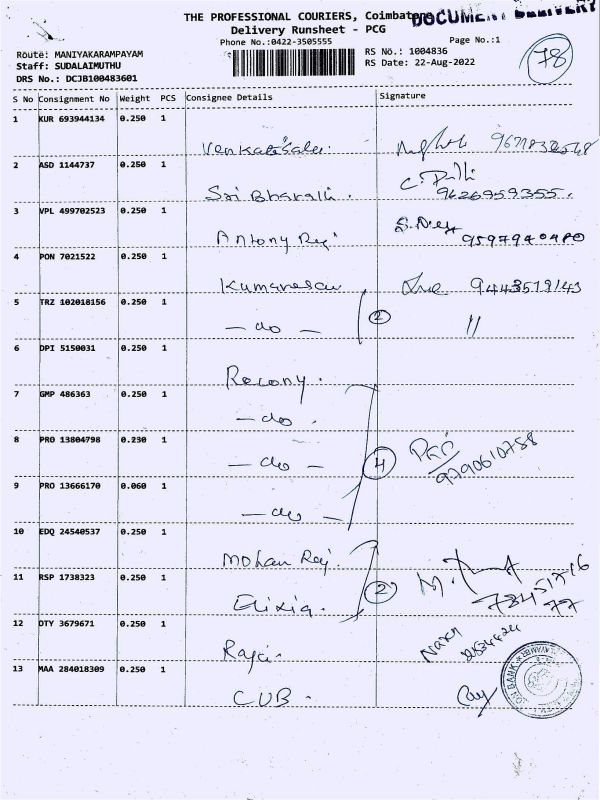 THE PROFESSIONAL COURIERS, Coimbatore
DOCUMENT DELIVERY
Delivery Runsheet - PCG
Phone No.:0422-3505555
Page No.:1
78
Route: MANIYAKARAMPAYAM
RS No.: 1004836
Staff: SUDALAIMUTHU
RS Date: 22-Aug-2022
DRS No.: DCJB100483601
S No Consignment No Weight PCS Consignee Details Signature
1 KUR 693944134 0.250 1
2 ASD 1144737 0.250 1
Sri Bharathi. 9426959355.
3 VPL 499702523 0.250 1
Antony Raj
4 PON 7021522 0.250 1
Kumaresan 9443519143
5 TRZ 102018156 0.250 1
— do — 2 "
6 DPI 5150031 0.250 1
Recony.
7 GMP 486363 0.250 1
— do .
8 PRO 13804798 0.230 1
— do — 4 9790610758
9 PRO 13666170 0.060 1
— do —
10 EDQ 24540537 0.250 1
Mohan Raj.
11 RSP 1738323 0.250 1
2
12 DTY 3679671 0.250 1
13 MAA 284018309 0.250 1
CUB .